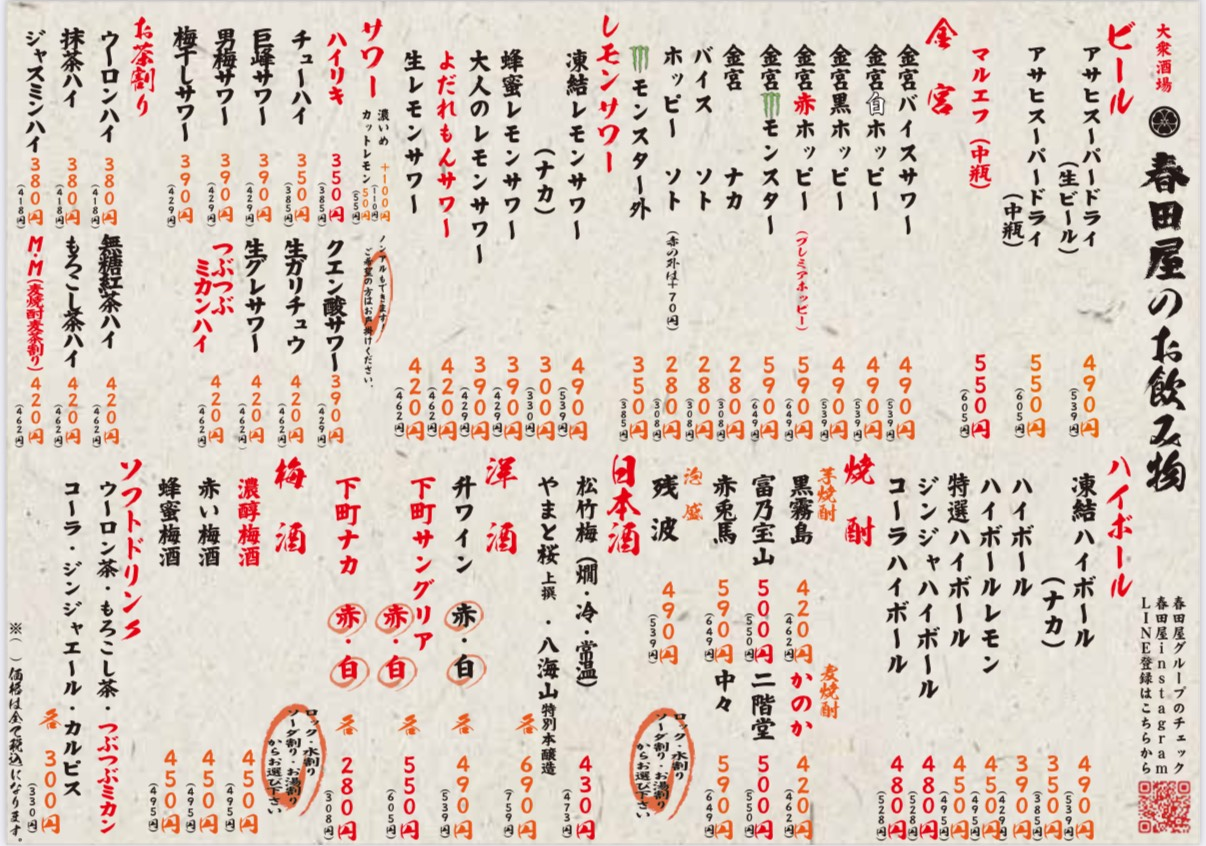 大衆酒場
春田屋のお飲み物
ビール
アサヒスーパードライ
(生ビール)
490円
(539円)
アサヒスーパードライ
(中瓶)
550円
(605円)
マルエフ(中瓶)
550円
(605円)
金宮
金宮バイスサワー
490円
(539円)
金宮白ホッピー
490円
(539円)
金宮黒ホッピー
490円
(539円)
金宮赤ホッピー
(プレミアホッピー)
590円
(649円)
金宮モンスター
590円
(649円)
金宮 ナカ
280円
(308円)
バイス ソト
280円
(308円)
ホッピー ソト
(赤の外は+70円)
280円
(308円)
モンスター外
350円
(385円)
レモンサワー
凍結レモンサワー
490円
(539円)
(ナカ)
300円
(330円)
蜂蜜レモンサワー
390円
(429円)
大人のレモンサワー
390円
(429円)
よだれもんサワー
420円
(462円)
生レモンサワー
420円
(462円)
サワー
濃いめ +100円
(110円)
カットレモン 50円
(55円)
ノンアルもできます!
ご希望の方はお声掛けください。
ハイリキ
350円
(385円)
チューハイ
350円
(385円)
巨峰サワー
390円
(429円)
男梅サワー
390円
(429円)
梅干しサワー
390円
(429円)
クエン酸サワー
390円
(429円)
生ガリチュウ
420円
(462円)
生グレサワー
420円
(462円)
つぶつぶ
ミカンハイ
420円
(462円)
お茶割り
ウーロンハイ
380円
(418円)
抹茶ハイ
380円
(418円)
ジャスミンハイ
380円
(418円)
無糖紅茶ハイ
420円
(462円)
もろこし茶ハイ
420円
(462円)
M・M(麦焼酎麦茶割り)
420円
(462円)
春田屋グループのチェック
春田屋instagram
LINE登録はこちらから
ハイボール
凍結ハイボール
490円
(539円)
(ナカ)
350円
(385円)
ハイボール
390円
(429円)
ハイボールレモン
450円
(495円)
特選ハイボール
450円
(495円)
ジンジャハイボール
480円
(528円)
コーラハイボール
480円
(528円)
焼酎
芋焼酎
黒霧島
420円
(462円)
富乃宝山
500円
(550円)
赤兎馬
590円
(649円)
麦焼酎
かのか
420円
(462円)
二階堂
500円
(550円)
中々
590円
(649円)
泡盛
残波
490円
(539円)
ロック・水割り
ソーダ割り・お湯割り
からお選び下さい
日本酒
松竹梅(燗・冷・常温)
430円
(473円)
やまと桜上撰・八海山特別本醸造
各690円
(759円)
洋酒
升ワイン 赤・白
各490円
(539円)
下町サングリア 赤・白
各550円
(605円)
下町ナカ 赤・白
各280円
(308円)
梅酒
ロック・水割り
ソーダ割り・お湯割り
からお選び下さい
濃醇梅酒
450円
(495円)
赤い梅酒
450円
(495円)
蜂蜜梅酒
450円
(495円)
ソフトドリンク
ウーロン茶・もろこし茶・つぶつぶミカン
コーラ・ジンジャエール・カルピス
各300円
(330円)
※( )価格は全て税込になります。